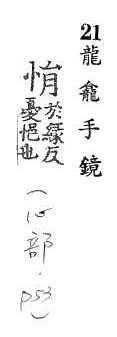 21龍龕手鏡
悁於緣反
憂悒也
(心部.
p53)